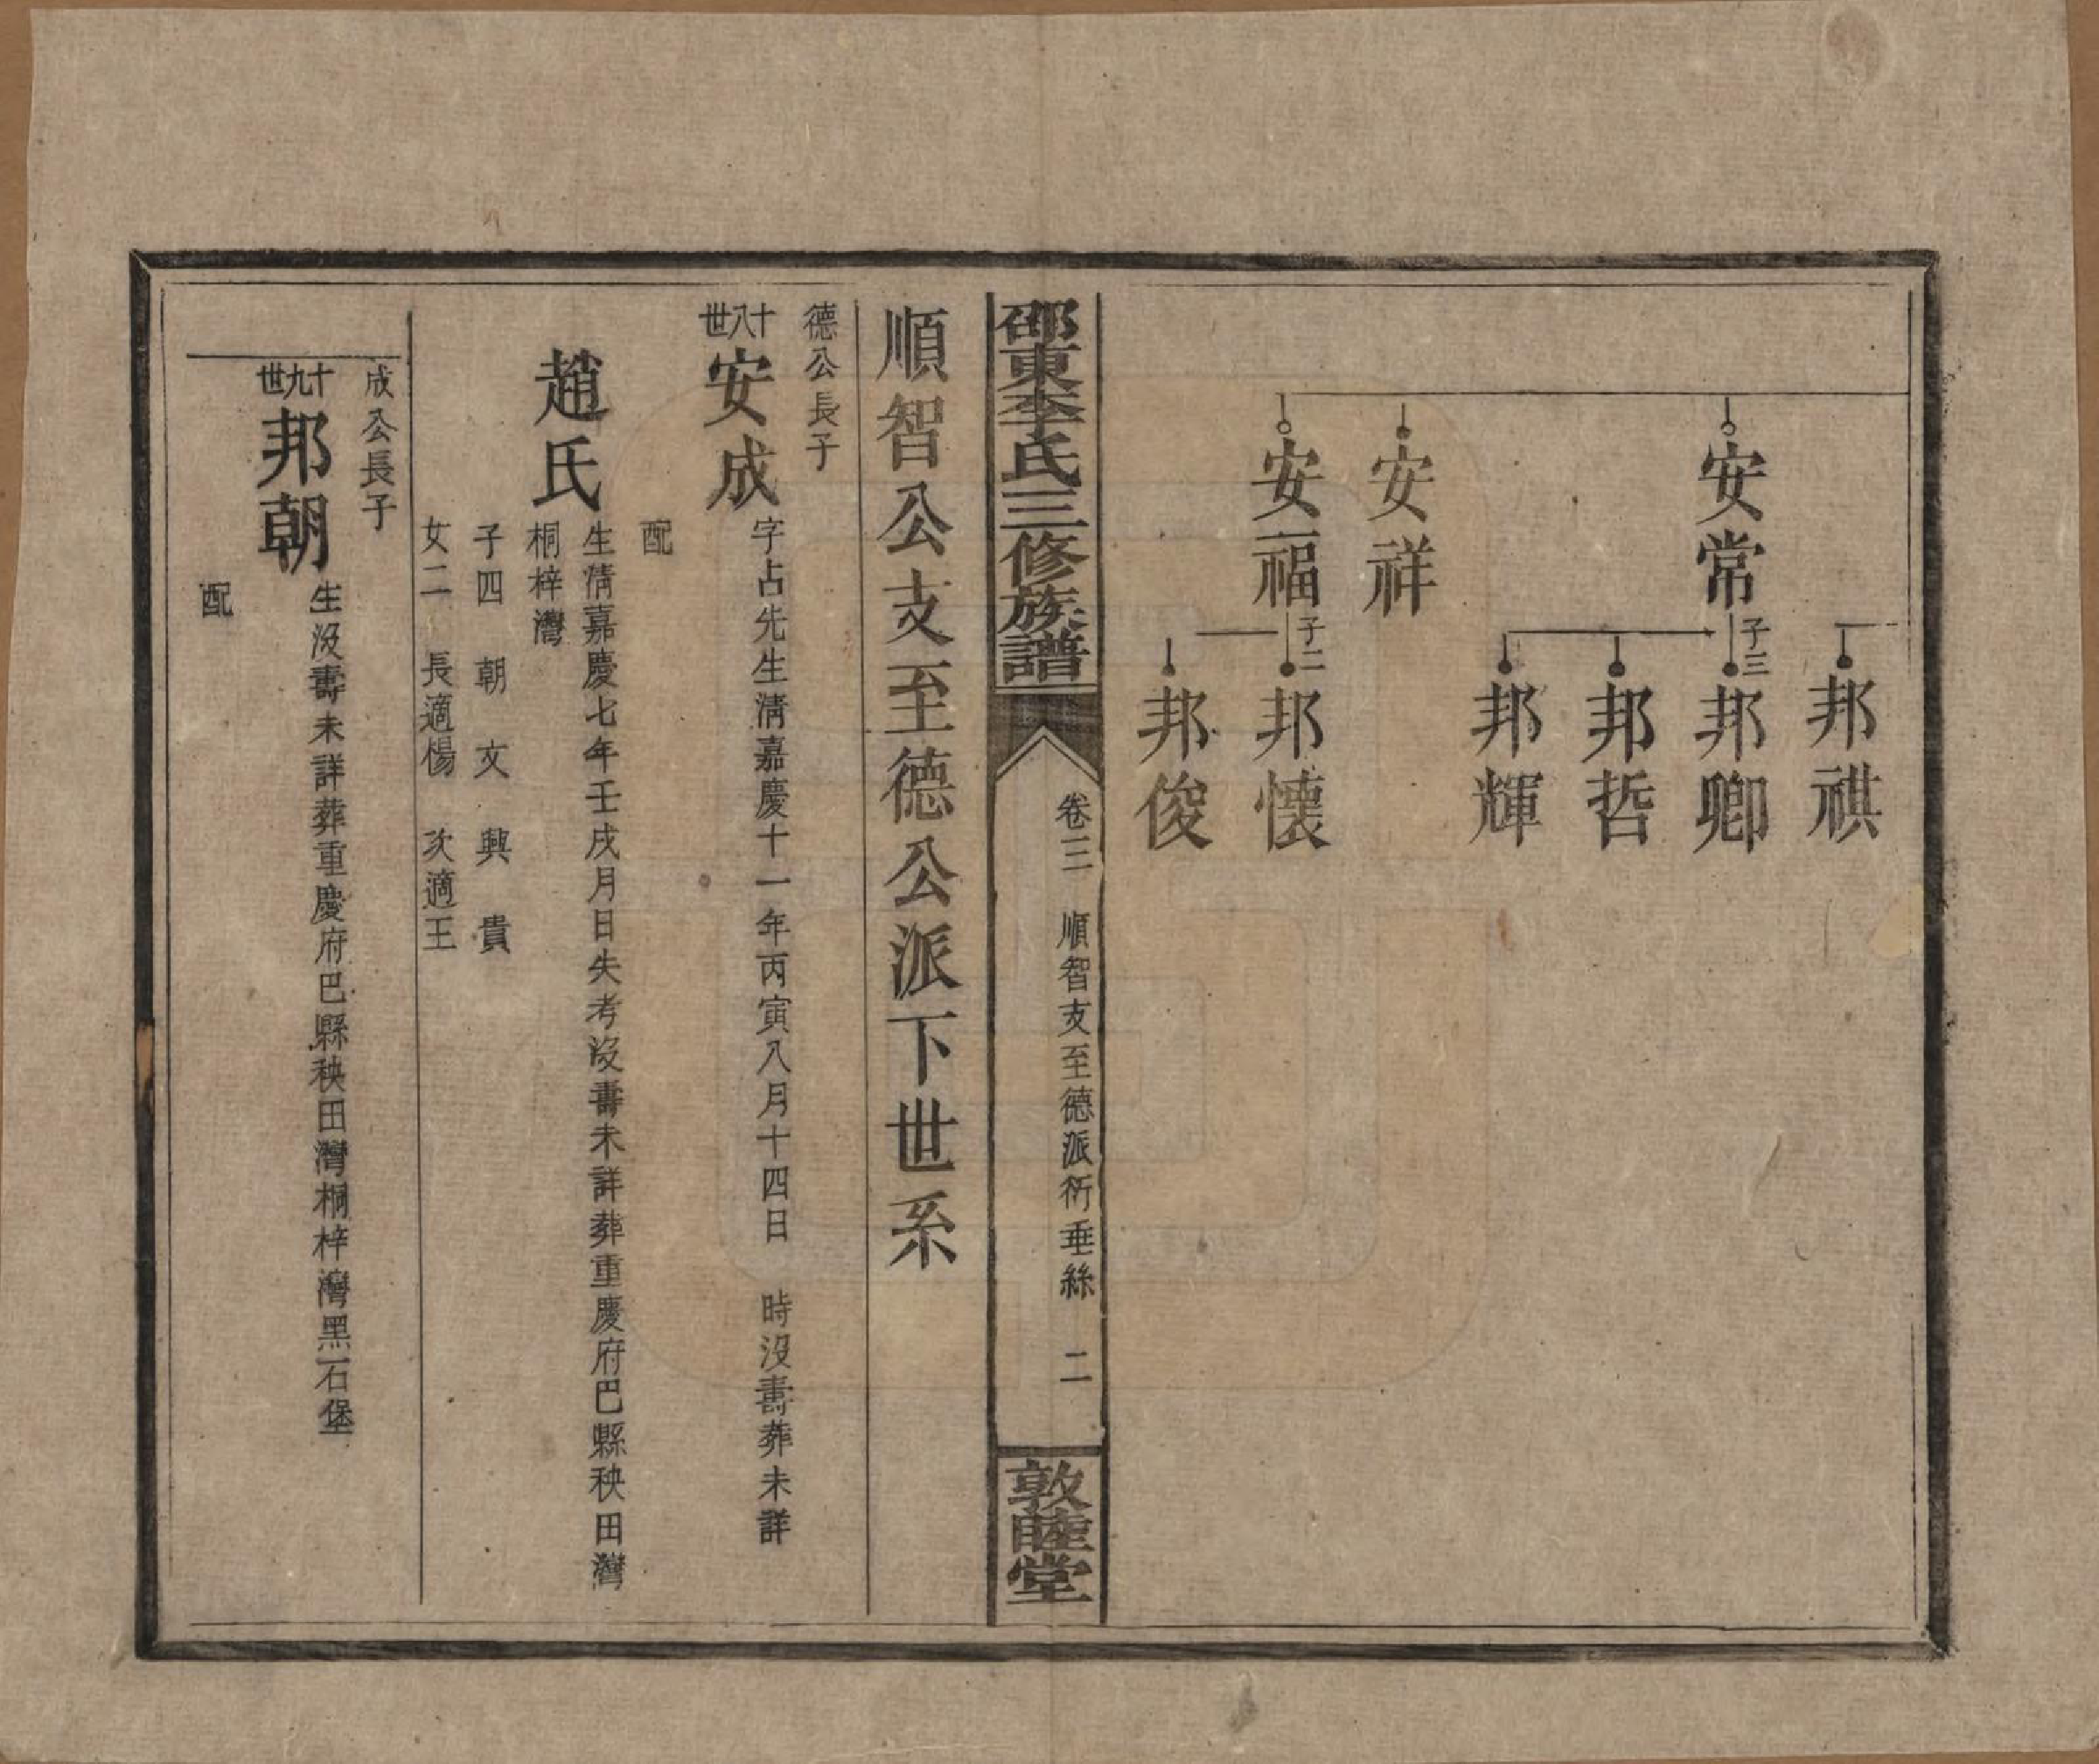 邦祺
安常
子三
邦卿
邦哲
邦輝
安祥
安福
子二
邦懷
邦俊
邵東李氏三修族譜
卷三 順智支至德派衍垂絲 二
敦睦堂
順智公支至德公派下世系
德公長子
十八世
安成
字占先生清嘉慶十一年丙寅八月十四日 時沒壽葬未詳
配
趙氏
生清嘉慶七年壬戌月日失考沒壽未詳葬重慶府巴縣秧田灣
桐梓灣
子四 朝 文 興 貴
女二 長適楊 次適王
成公長子
十九世
邦朝
生沒壽未詳葬重慶府巴縣秧田灣桐梓灣黑石堡
配